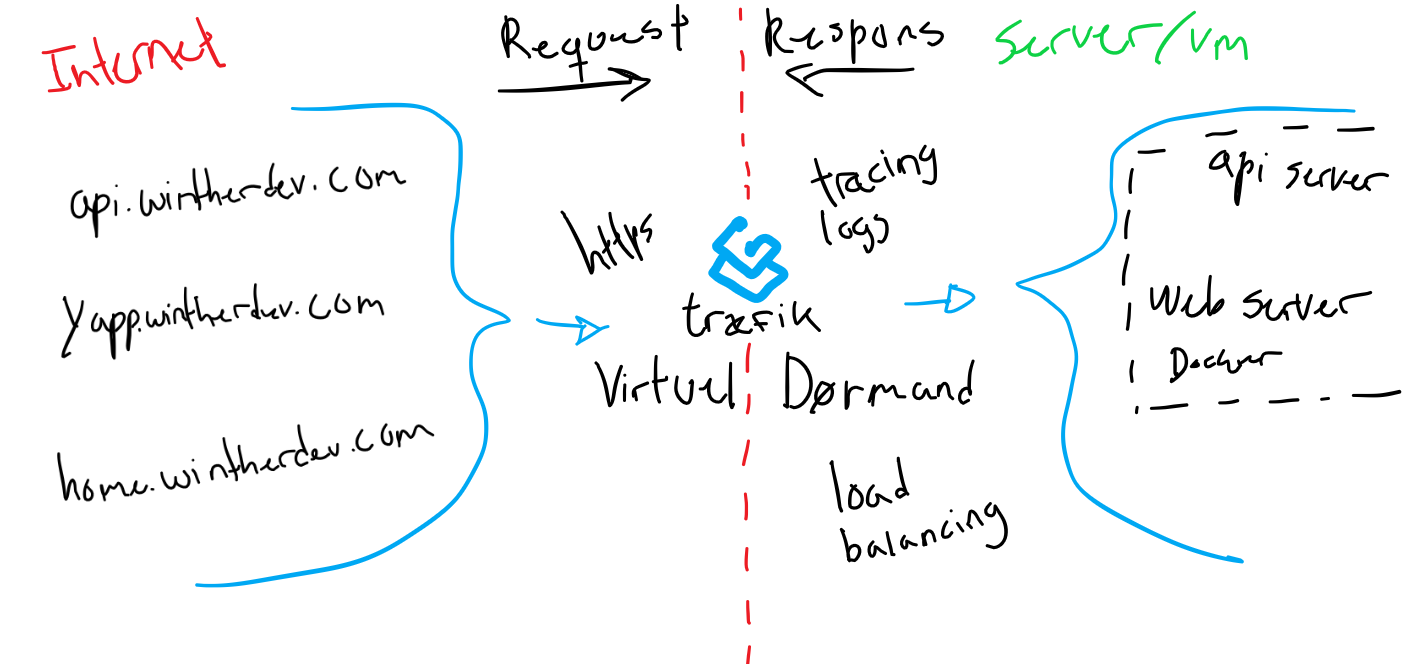 Internet
Request
Respons
Server/vm
api.wintherdev.com
yapp.wintherdev.com
home.wintherdev.com
https
tracing
logs
træfik
Virtuel Dørmand
load
balancing
api server
Web server
Docker